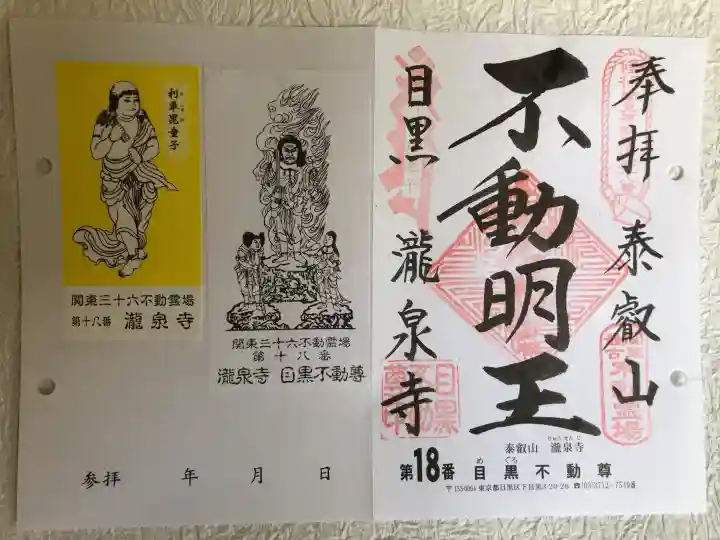 奉拝 泰叡山
不動明王
目黒 瀧泉寺
泰叡山 瀧泉寺
りゅうせんじ
第18番 目黒不動尊
めぐろ
東京都目黒区下目黒3-20-26 ☎(03)3712-7549番
利車毘童子
関東三十六不動霊場
第十八番 瀧泉寺
関東三十六不動霊場
第十八番
瀧泉寺 目黒不動尊
参拝 年 月 日